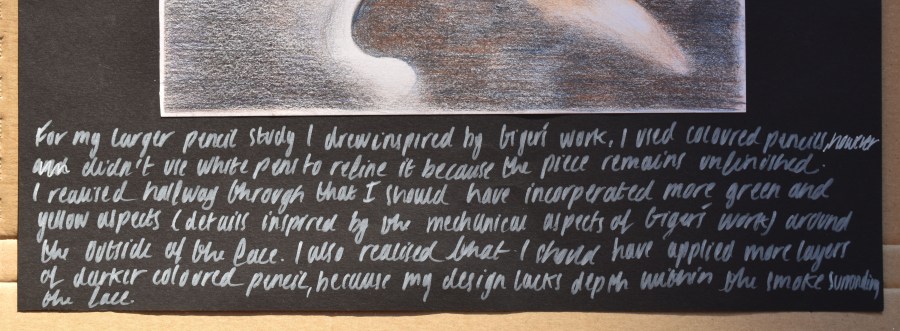 For my larger pencil study I drew inspired by Giger's work. I used coloured pencils, however
didn't use white pen to refine it because the piece remains unfinished.
I realised halfway through that I should have incorperated more green and
yellow aspects (details inspired by the mechanical aspects of Giger's work) around
the outside of the face. I also realised that I should have applied more layers
of darker coloured pencil, because my design lacks depth within the smoke surronding
the face.